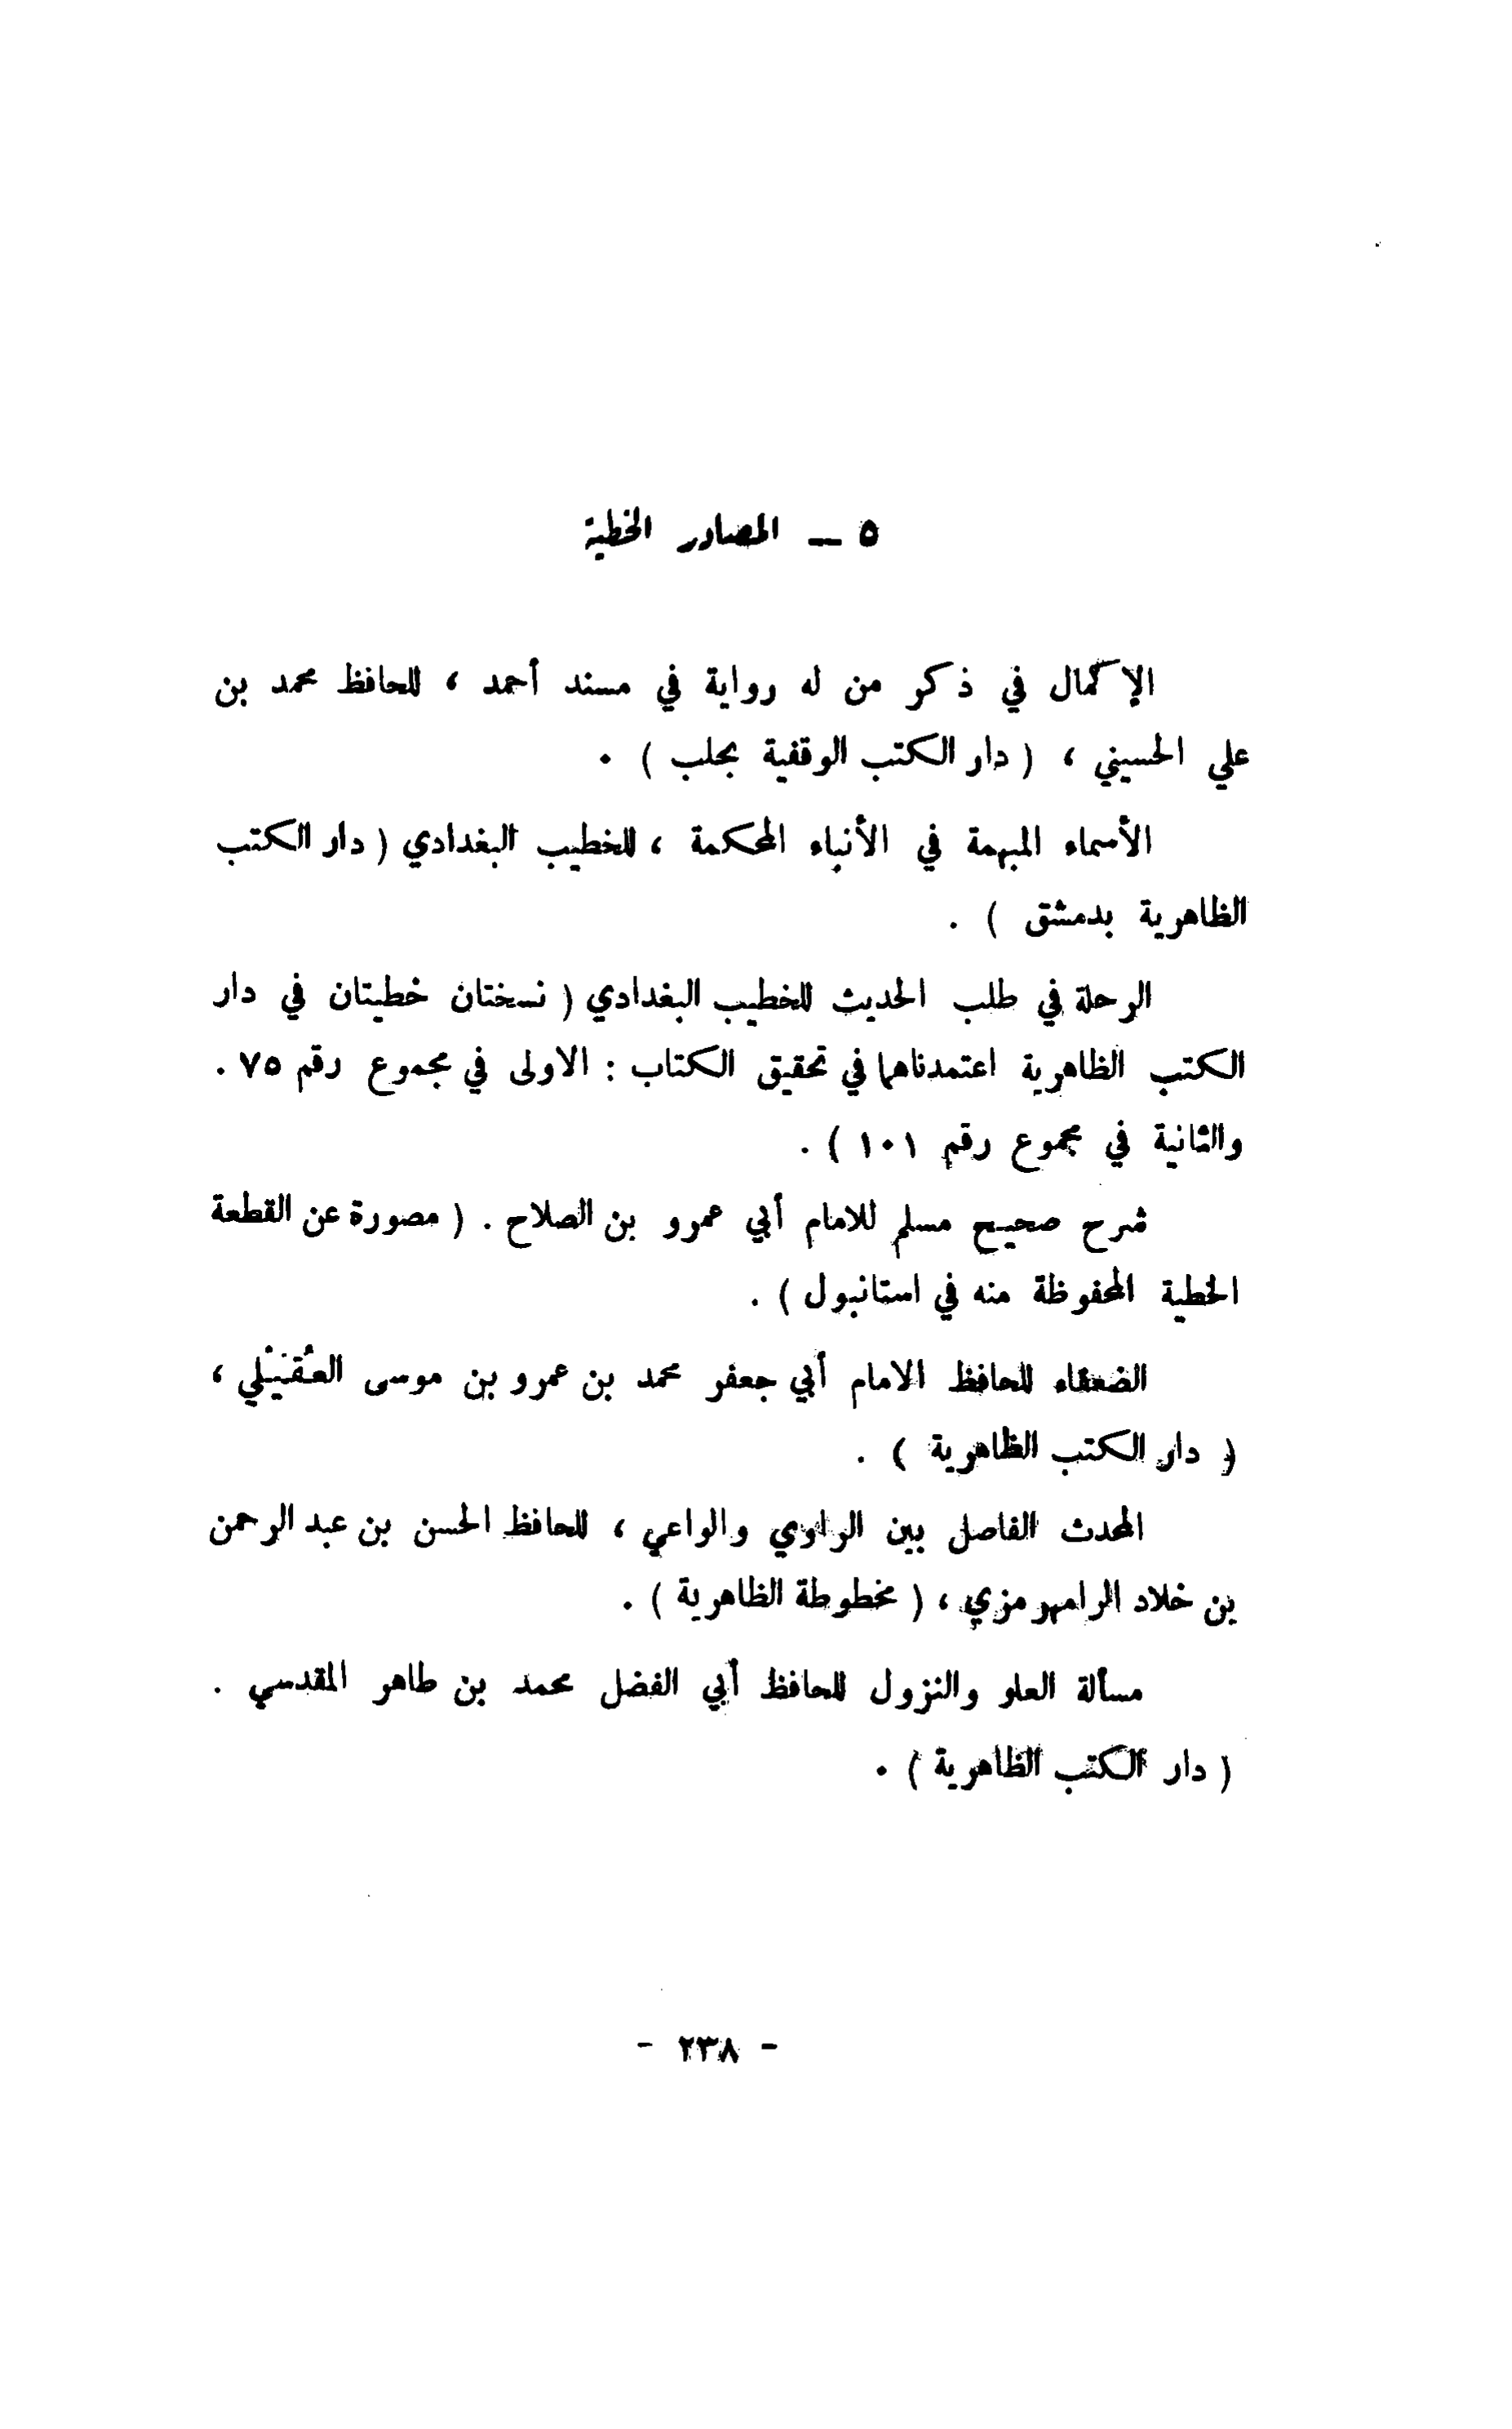 ٥ — المصادر الخطية
الإكمال في ذكر من له رواية في مسند أحمد ، للحافظ محمد بن
علي الحسيني ، ( دار الكتب الوقفية بحلب ) .
الأسماء المبهمة في الأنباء المحكمة ، للخطيب البغدادي ( دار الكتب
الظاهرية بدمشق ) .
الرحلة في طلب الحديث للخطيب البغدادي ( نسختان خطيتان في دار
الكتب الظاهرية اعتمدناهما في تحقيق الكتاب : الاولى في مجموع رقم ٧٥ .
والثانية في مجموع رقم ١٠١ ) .
شرح صحيح مسلم للامام أبي عمرو بن الصلاح . ( مصورة عن القطعة
الخطية المحفوظة منه في استانبول ) .
الضعفاء للحافظ الامام أبي جعفر محمد بن عمرو بن موسى العُقَيْلي ،
( دار الكتب الظاهرية ) .
المحدث الفاصل بين الراوي والواعي ، للحافظ الحسن بن عبد الرحمن
بن خلاد الرامهرمزي ، ( مخطوطة الظاهرية ) .
مسألة العلو والنزول للحافظ أبي الفضل محمد بن طاهر المقدسي .
( دار الكتب الظاهرية ) .
- ٢٣٨ -